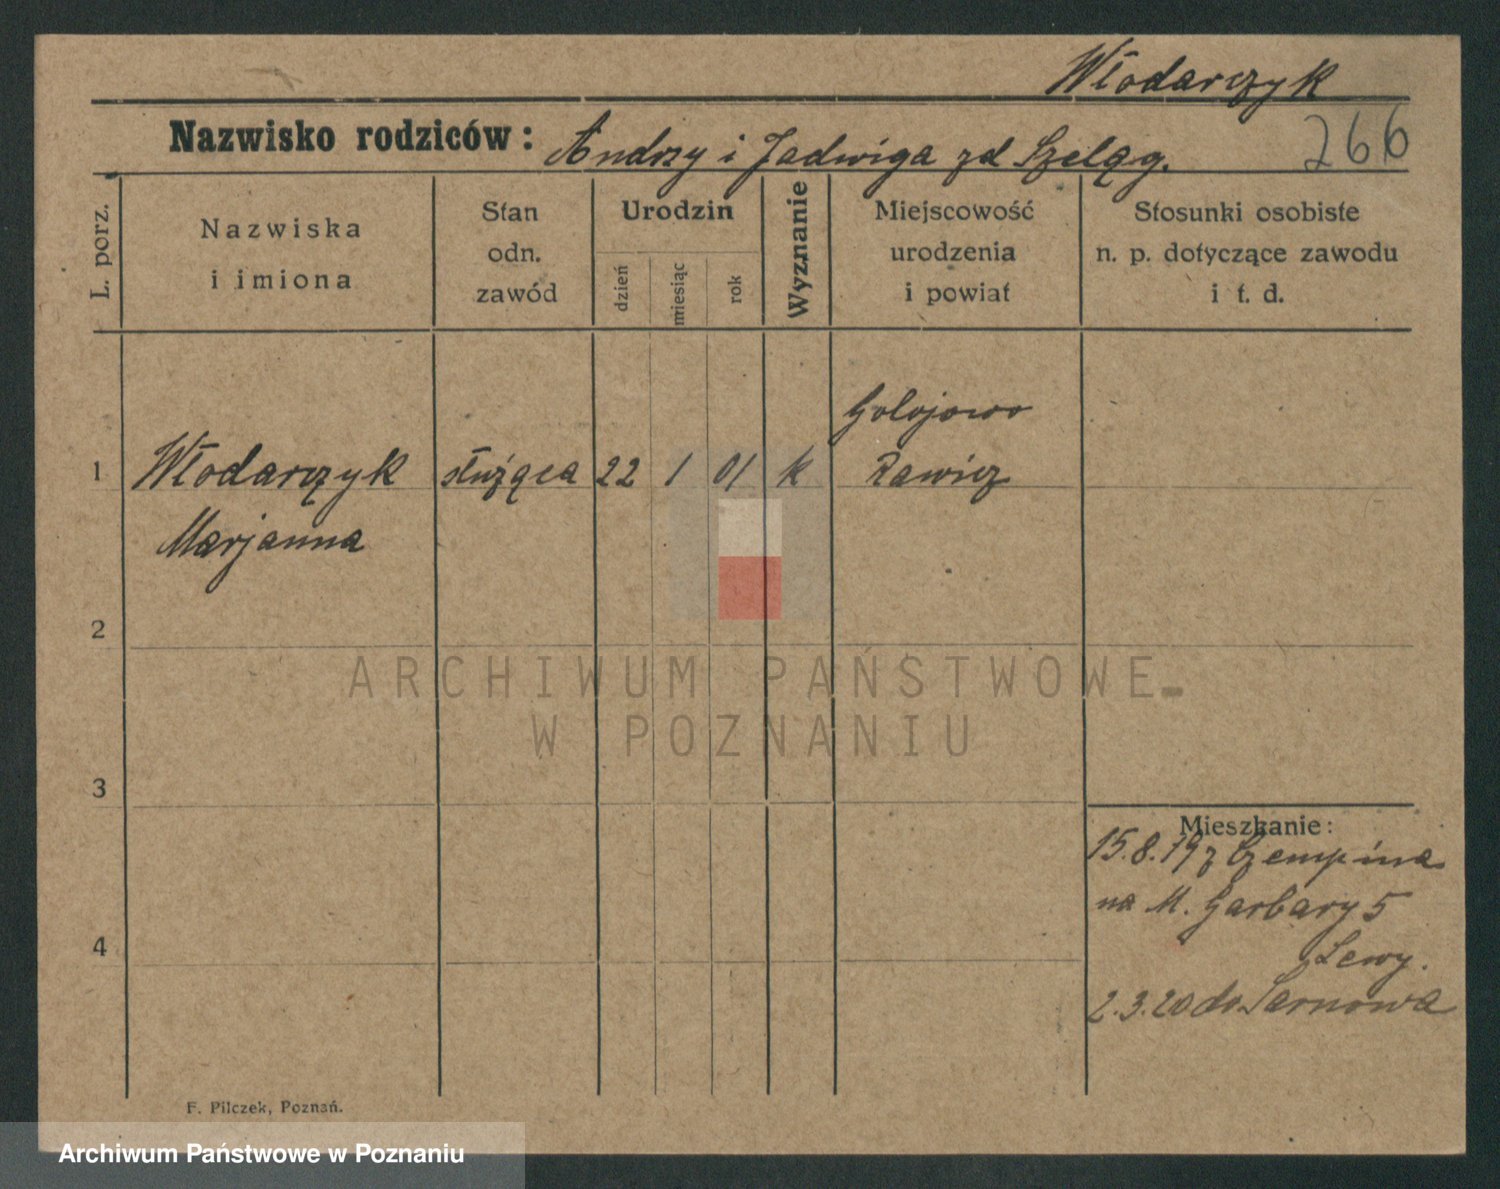 Włodarczyk
Nazwisko rodziców: Andrzy i Jadwiga zd Szeląg.
266
L. porz.
Nazwiska
i imiona
Stan
odn.
zawód
Urodzin
dzień
miesiąc
rok
Wyznanie
Miejscowość
urodzenia
i powiat
Stosunki osobiste
n. p. dotyczące zawodu
i t. d.
Golojowo
1 Włodarczyk służąca 22 1 01 k Rawicz
Marjanna
2
3
4
Mieszkanie:
15.8.19 z Czempina
na M. Garbary 5
Lewy.
2.3.20 do Sarnowa
F. Pilczek, Poznań.
ARCHIWUM PAŃSTWOWE
W POZNANIU
Archiwum Państwowe w Poznaniu